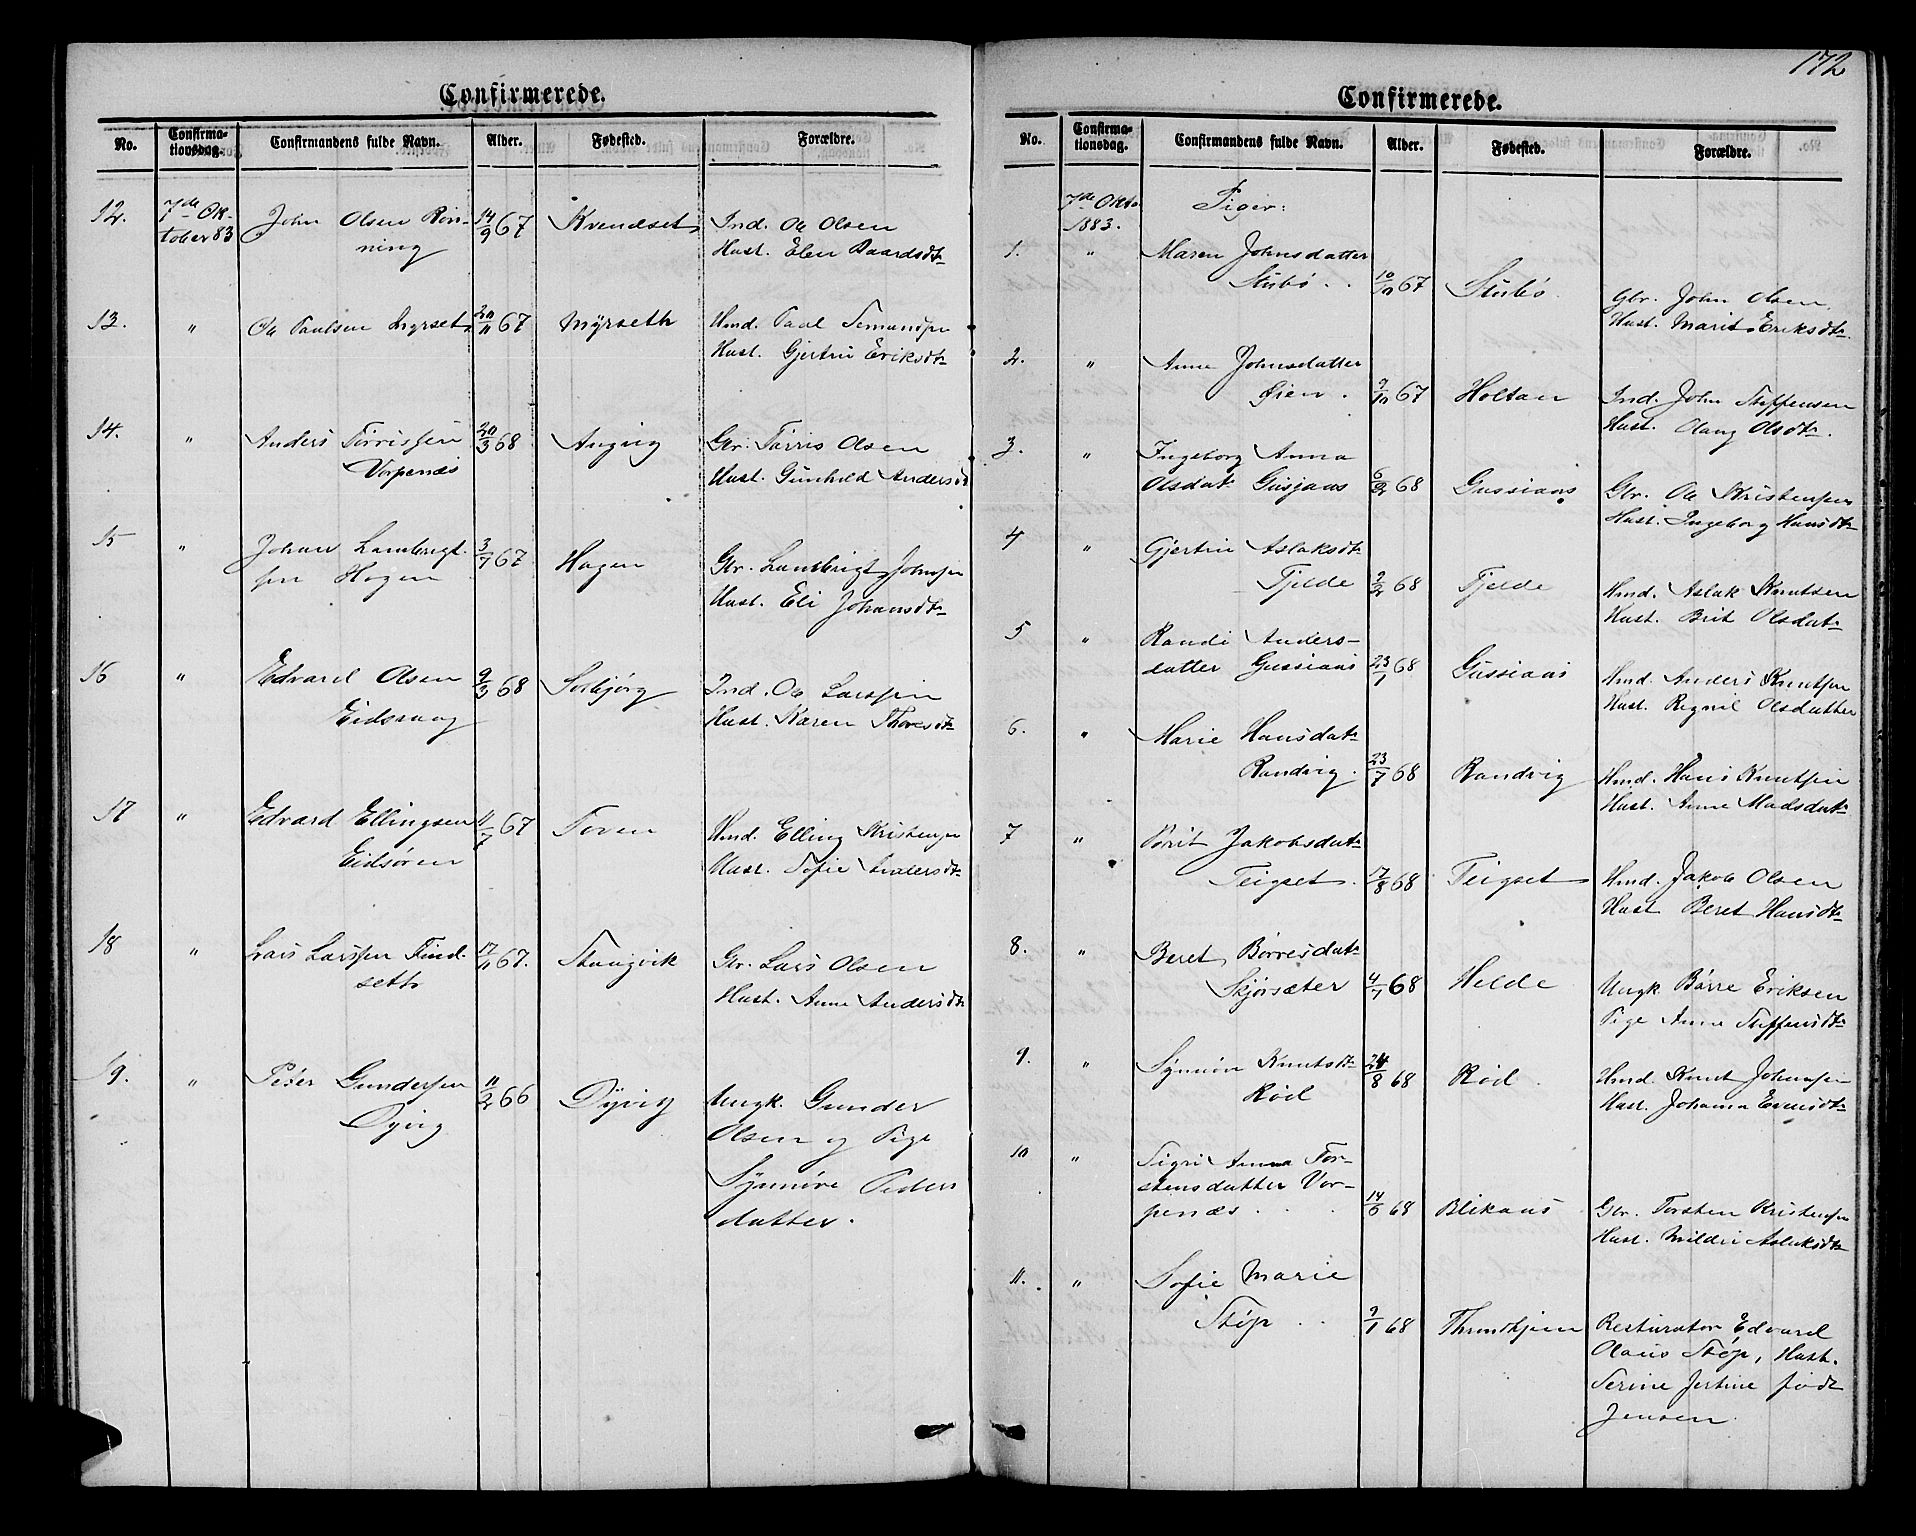 Confirmerede.
No. Confirma-tionsdag. Confirmandens fulde Navn. Alder. Fødested. Forældre.
12. 7de Ok-tober 83 John Olsen Røn-ning 14/9 67 Kvendset Ind. Ole Olsen
Hust. Elen Baardsdtr
13. " Ole Paulsen Myrset 20/11 67 Myrseth Hmd. Paul Semundsen
Hust. Gjertru Eriksdtr
14. " Anders Torrissen 20/3 68 Angvig Gbr. Torris Olsen
Vorpenæs Hust. Gunhild Andersd
15 " Johan Lambrigt- 3/7 67 Hagen Gbr. Lambrigt Johnsen
sen Hagen Hust. Eli Johansdtr
16 " Edvard Olsen 9/3 68 Solbjørg Ind. Ole Larssen
Eidsvaag Hust. Karen Thoresdtr
17 " Edvard Ellingsen 11/7 67 Toven Hmd. Elling Kristensen
Eidsøren Hust. Sofie Andersdtr
18 " Lars Larssen Find- 17/11 67. Stangvik Gbr. Lars Olsen
seth Hust. Anne Andersdtr
19. " Peter Gundersen 11/2 66 Dyvig Ungk. Gunder
Dyvig Olsen og Pige
Synnøve Peders
datter.
172
Confirmerede.
No. Confirma-tionsdag. Confirmandens fulde Navn. Alder. Fødested. Forældre.
7de Okto 1883. Piger:
1. " Maren Johnsdatter
Stubø . . 10/10 67 Stubø. Gbr. John Olsen
Hust. Marit Eriksdtr.
2. " Anne Johnsdatter
Øien . 9/10 67 Holtan Ind. John Steffensen
Hust. Olaug Olsdtr.
3. " Ingeborg Anna
Olsdatr Gusjaas 6/2 68 Gussiaas Gbr. Ole Kristensen
Hust. Ingeborg Hansdtr
4 " Gjertru Aslaksdtr
Tjelde 9/2 68 Tjelde Hmd. Aslak Knutsen
Hust. Brit Olsdatr
5 " Randi Anders-
datter Gussiaas 23/1 68 Gussiaas Hmd. Anders Knutsen
Hust. Rignil Olsdatter
6. " Marie Hansdatr
Randvig. 23/7 68 Randvig Hmd. Hans Knutsen
Hust. Anne Madsdatr
7 " Brit Jakobsdatr
Teigset. 17/8 68 Teigset Hmd. Jakob Olsen
Hust Beret Hansdtr
8. " Beret Børresdatr
Skjørsæter 4/7 68 Helde Ungk. Børre Eriksen
Pige Anne Steffensdtr
9. " Synnøv Knutsdtr
Rød 24/8 68 Rød. Hmd. Knut Johnsen
Hust. Johanna Evensdtr
10 " Sigri Anna Tor-
stensdatter Vor-
penæs . . . 14/6 68 Blikaas Gbr. Torsten Kristensen
Hust. Mildri Aslaksdtr
11. " Sofie Marie
Støp . . 9/1 68 Throndhjem Resturatør Edvard
Olaus Støp, Hust.
Serine Jertine født
Jensen.